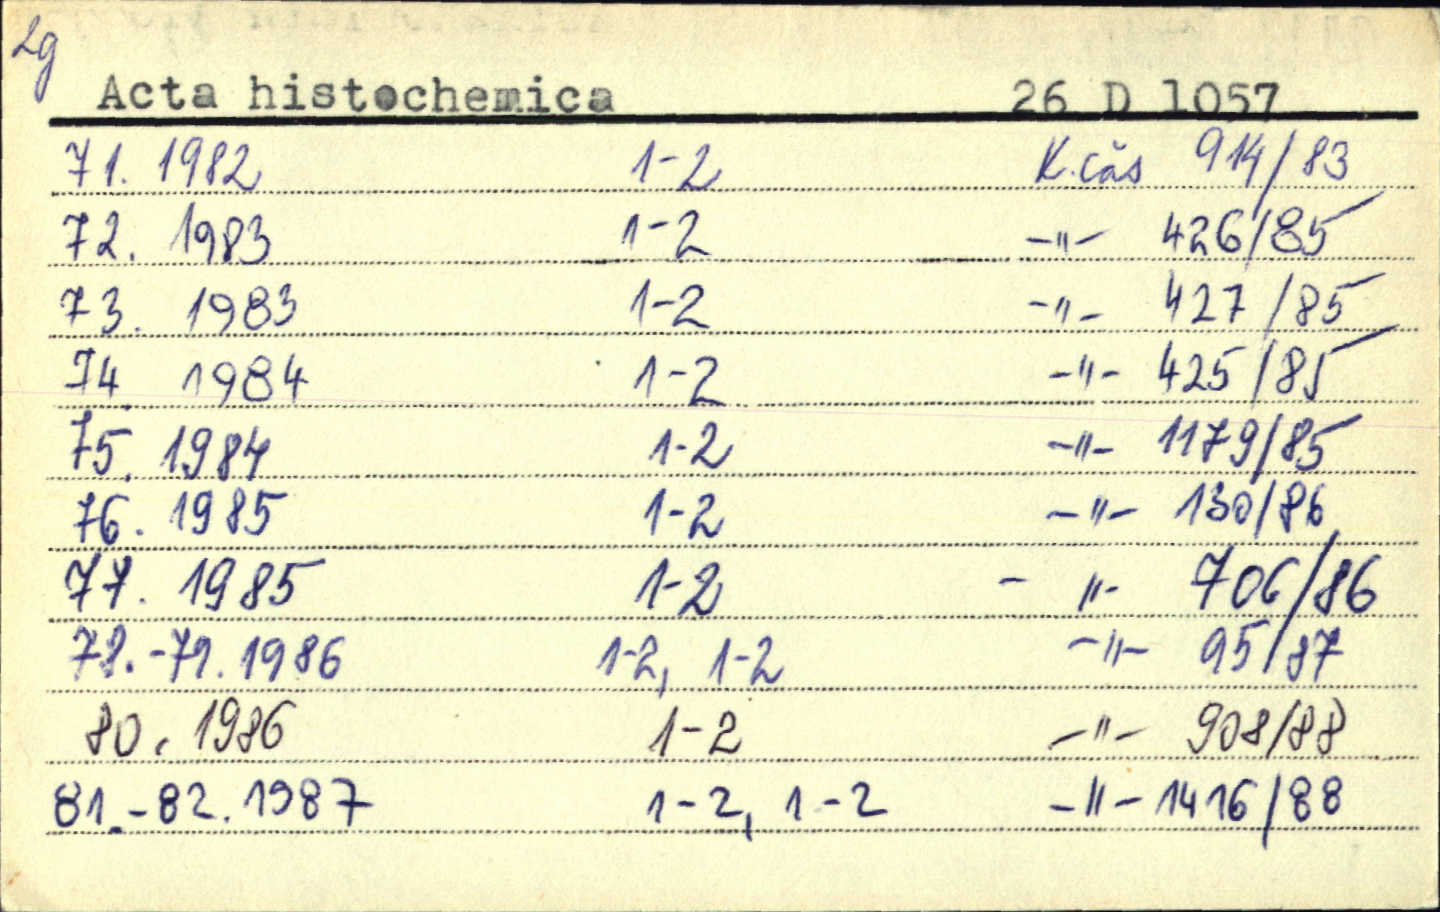 2g
Acta histochemica 26 D 1057
71. 1982 1-2 K.čas 914/83
72. 1983 1-2 -"- 426/85
73. 1983 1-2 -"- 427/85
74. 1984 1-2 -"- 425/85
75. 1984 1-2 -"- 1179/85
76. 1985 1-2 -"- 130/86
77. 1985 1-2 -"- 706/86
78.-79. 1986 1-2, 1-2 -"- 95/87
80. 1986 1-2 -"- 908/88
81.-82. 1987 1-2, 1-2 -"- 1416/88